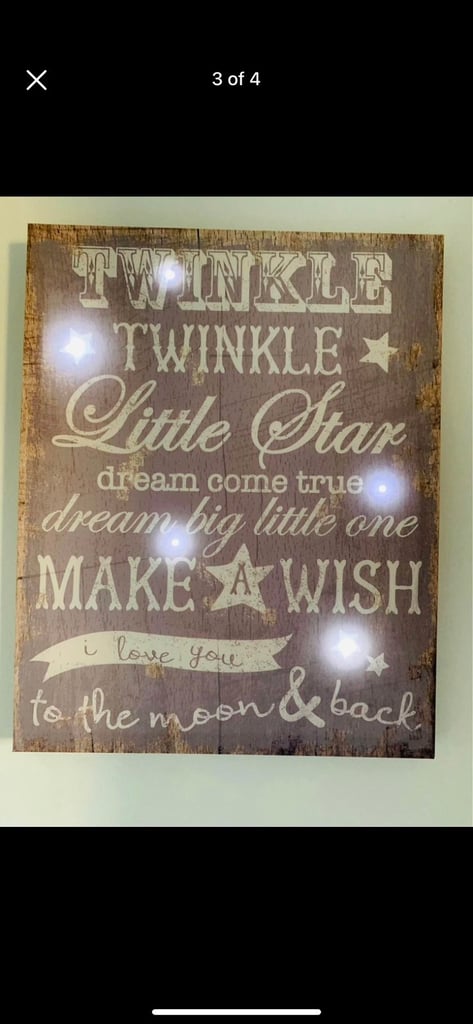 3 of 4
TWINKLE
TWINKLE
Little Star
dream come true
dream big little one
MAKE A WISH
i love you
to the moon & back